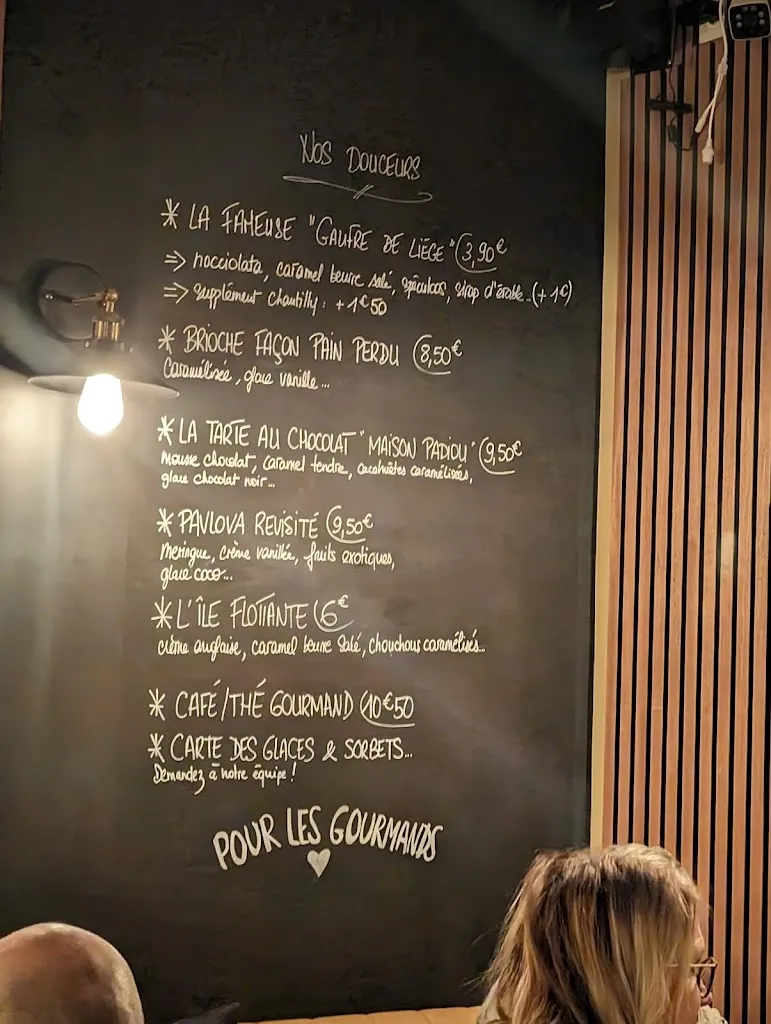 NOS DOUCEURS
* LA FAMEUSE "GAUFRE DE LIÈGE" 3,90€
⇒ nocciolata, caramel beurre salé, spéculoos, sirop d'érable..(+1€)
⇒ supplément Chantilly : +1€50
* BRIOCHE FAÇON PAIN PERDU 8,50€
Caramélisée, glace vanille...
* LA TARTE AU CHOCOLAT "MAISON PADIOU" 9,50€
mousse chocolat, caramel tendre, cacahuètes caramélisées,
glace chocolat noir...
* PAVLOVA REVISITÉ 9,50€
Meringue, crème vanillée, fruits exotiques,
glace coco...
* L'ÎLE FLOTTANTE 6€
crème anglaise, caramel beurre salé, chouchous caramélisés...
* CAFÉ/THÉ GOURMAND 10€50
* CARTE DES GLACES & SORBETS...
Demandez à notre équipe !
POUR LES GOURMANDS